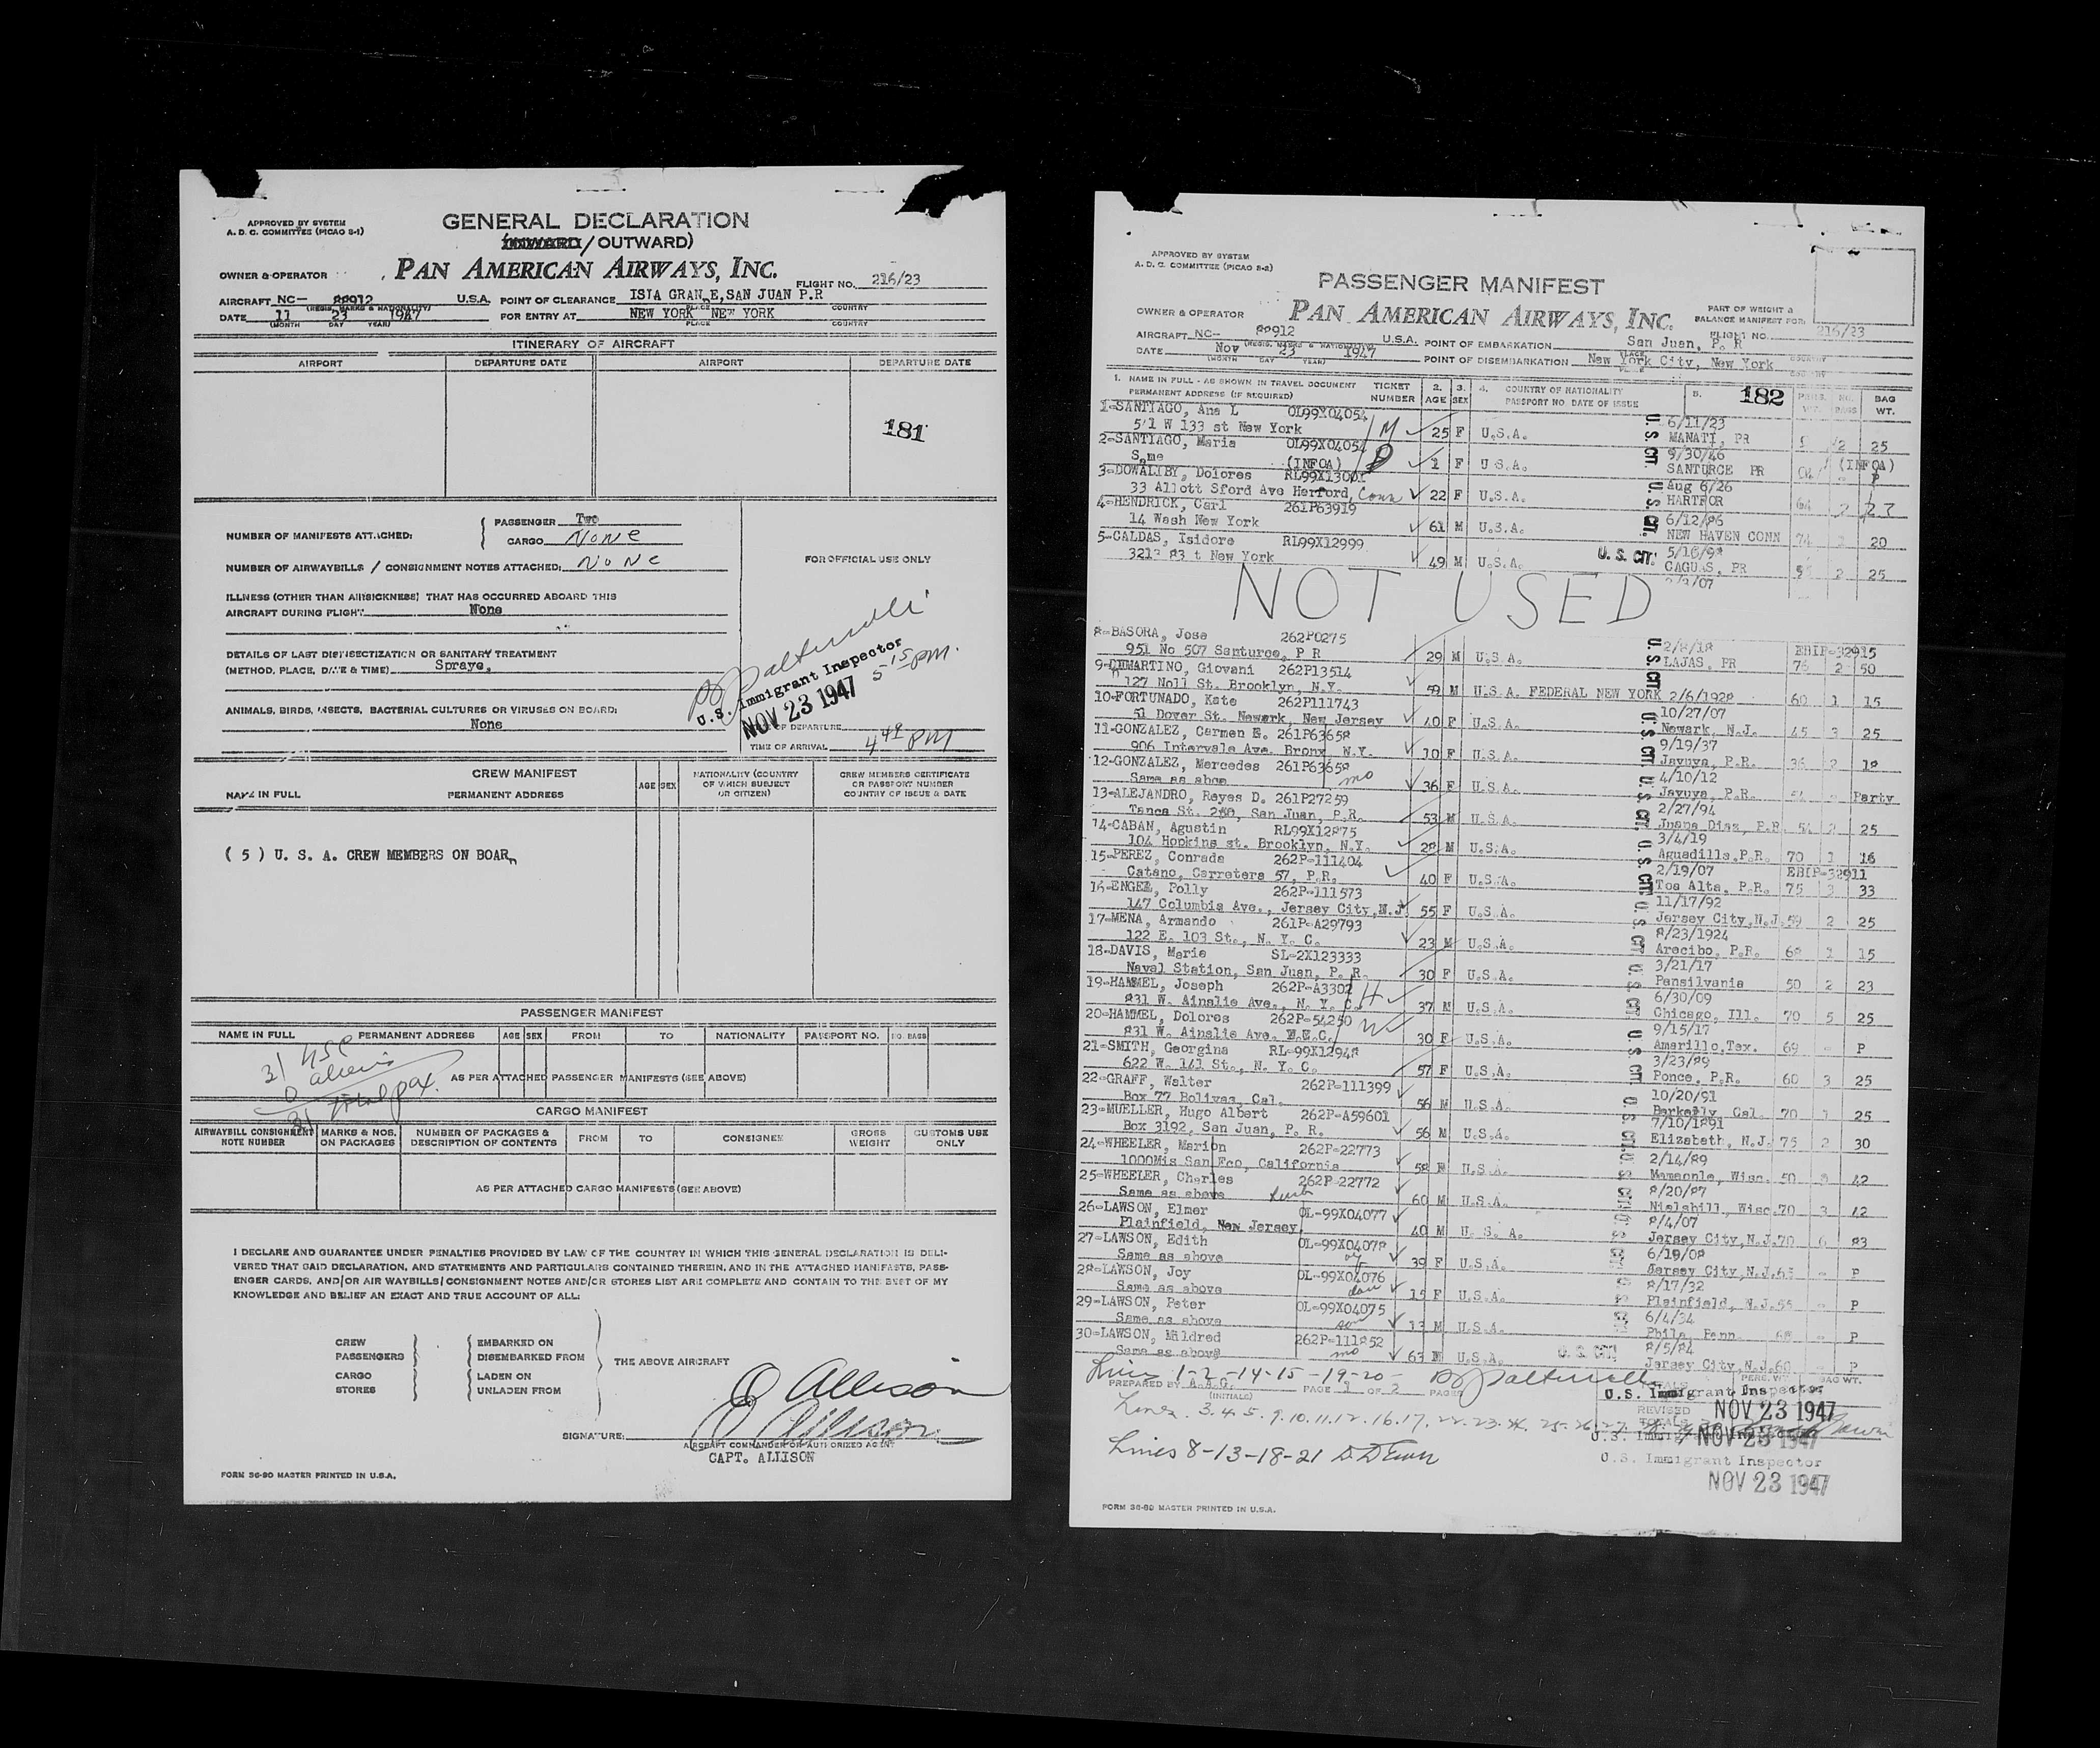 APPROVED BY SYSTEM
A. D. C. COMMITTEE (PICAO 8-1)
GENERAL DECLARATION
(INWARD / OUTWARD)
OWNER & OPERATOR
PAN AMERICAN AIRWAYS, INC.
FLIGHT NO. 216/23
AIRCRAFT NC- 88912 U.S.A. POINT OF CLEARANCE ISLA GRANDE, SAN JUAN P.R
(REGIS. MARKS & NATIONALITY) PLACE COUNTRY
DATE 11 23 1947 FOR ENTRY AT NEW YORK NEW YORK
(MONTH DAY YEAR) PLACE COUNTRY
ITINERARY OF AIRCRAFT
AIRPORT DEPARTURE DATE AIRPORT DEPARTURE DATE
181
NUMBER OF MANIFESTS ATTACHED: PASSENGER Two
CARGO None
NUMBER OF AIRWAYBILLS / CONSIGNMENT NOTES ATTACHED: None
FOR OFFICIAL USE ONLY
ILLNESS (OTHER THAN AIRSICKNESS) THAT HAS OCCURRED ABOARD THIS
AIRCRAFT DURING FLIGHT None
DETAILS OF LAST DISINSECTIZATION OR SANITARY TREATMENT
(METHOD, PLACE, DATE & TIME) Spraye,
ANIMALS, BIRDS, INSECTS, BACTERIAL CULTURES OR VIRUSES ON BOARD:
None
U.S. Immigrant Inspector
NOV 23 1947 5 15 PM.
OF DEPARTURE
TIME OF ARRIVAL 4 49 PM
CREW MANIFEST
NAME IN FULL PERMANENT ADDRESS AGE SEX NATIONALITY (COUNTRY OF WHICH SUBJECT OR CITIZEN) CREW MEMBERS CERTIFICATE OR PASSPORT NUMBER COUNTRY OF ISSUE & DATE
( 5 ) U. S. A. CREW MEMBERS ON BOARD
PASSENGER MANIFEST
NAME IN FULL PERMANENT ADDRESS AGE SEX FROM TO NATIONALITY PASSPORT NO. NO. BAGS
31 USC
0 aliens
31 Total pax.
AS PER ATTACHED PASSENGER MANIFESTS (SEE ABOVE)
CARGO MANIFEST
AIRWAYBILL CONSIGNMENT NOTE NUMBER MARKS & NOS. ON PACKAGES NUMBER OF PACKAGES & DESCRIPTION OF CONTENTS FROM TO CONSIGNEE GROSS WEIGHT CUSTOMS USE ONLY
AS PER ATTACHED CARGO MANIFESTS (SEE ABOVE)
I DECLARE AND GUARANTEE UNDER PENALTIES PROVIDED BY LAW OF THE COUNTRY IN WHICH THIS GENERAL DECLARATION IS DELI-
VERED THAT SAID DECLARATION, AND STATEMENTS AND PARTICULARS CONTAINED THEREIN, AND IN THE ATTACHED MANIFESTS, PASS-
ENGER CARDS, AND/OR AIR WAYBILLS/CONSIGNMENT NOTES AND/OR STORES LIST ARE COMPLETE AND CONTAIN TO THE BEST OF MY
KNOWLEDGE AND BELIEF AN EXACT AND TRUE ACCOUNT OF ALL:
CREW EMBARKED ON
PASSENGERS DISEMBARKED FROM THE ABOVE AIRCRAFT
CARGO LADEN ON
STORES UNLADEN FROM
O Allison
SIGNATURE: O Allison
AIRCRAFT COMMANDER OR AUTHORIZED AGENT
CAPT. ALLISON
FORM 36-80 MASTER PRINTED IN U.S.A.
APPROVED BY SYSTEM
A. D. C. COMMITTEE (PICAO 8-2)
PASSENGER MANIFEST
OWNER & OPERATOR PAN AMERICAN AIRWAYS, INC.
PART OF WEIGHT &
BALANCE MANIFEST FOR:
FLIGHT NO. 216/23
AIRCRAFT NC- 88912 U.S.A. POINT OF EMBARKATION San Juan, P. R
DATE Nov 23 1947 POINT OF DISEMBARKATION New York City, New York
(MONTH DAY YEAR)
1. NAME IN FULL - AS SHOWN IN TRAVEL DOCUMENT TICKET 2. 3. 4. COUNTRY OF NATIONALITY 5. 182 PERS. NO. BAG
PERMANENT ADDRESS (IF REQUIRED) NUMBER AGE SEX PASSPORT NO. DATE OF ISSUE WT. BAGS WT.
1-SANTIAGO, Ana L OL99X04054 6/11/23
5'1 W 133 st New York M 25 F U.S.A. U.S. CIT. MANATI, PR 2 25
2-SANTIAGO, Maria OL99X04054 9/30/46
Same (INFOA) D 1 F U.S.A. SANTURCE PR (INFOA)
3-DOWALIBY, Dolores RL99X13001 Aug 6/26 P
33 Allott Sford Ave Harford, Conn 22 F U.S.A. HARTFOR 64 2 27
4-HENDRICK, Carl 261P63919 6/12/86
14 Wash New York 61 M U.S.A. NEW HAVEN CONN 74 2 20
5-CALDAS, Isidore RL99X12999 5/16/98
321? 83 t New York 49 M U.S.A. U. S. CIT. CAGUAS, PR 2 25
NOT USED
8-BASORA, Jose 262P0275 2/8/18 EBIP-32915
951 No 507 Santurce, P R 29 M U.S.A. LAJAS, PR 76 2 50
9-DIMARTINO, Giovani 262P13514
127 Noll St. Brooklyn, N.Y. 59 M U.S.A. FEDERAL NEW YORK 2/6/1928 60 1 15
10-FORTUNADO, Kate 262P111743 10/27/07
51 Dover St. Newark, New Jersey 40 F U.S.A. Newark, N.J. 45 3 25
11-GONZALEZ, Carmen E. 261P63658 9/19/37
906 Intervale Ave. Bronx, N.Y. 10 F U.S.A. Jayuya, P.R. 36 2 18
12-GONZALEZ, Mercedes 261P63658 4/10/12
Same as abce mo 36 F U.S.A. Jayuya, P.R. 54 - Party
13-ALEJANDRO, Reyes D. 261P27259 2/27/94
Tanca St. 288, San Juan, P.R. 53 M U.S.A. Juana Diaz, P.R. 54 2 25
14-CABAN, Agustin RL99X12875 3/4/19
104 Hopkins st. Brooklyn, N.Y. 28 M U.S.A. Aguadilla, P.R. 70 1 16
15-PEREZ, Conrada 262P-111404 2/19/07 EBIP-32911
Catano, Carretera 57, P.R. 40 F U.S.A. Toa Alta, P.R. 75 3 33
16-ENGEL, Polly 262P-111573 11/17/92
147 Columbia Ave., Jersey City, N.J. 55 F U.S.A. Jersey City, N.J. 59 2 25
17-MENA, Armando 261P-A29793 8/23/1924
122 E. 103 St., N. Y. C. 23 M U.S.A. Arecibo, P.R. 68 1 15
18-DAVIS, Marie SL-2X123333 3/21/17
Naval Station, San Juan, P. R. 30 F U.S.A. Pensilvania 50 2 23
19-HAMMEL, Joseph 262P-A3302 6/30/09
831 W. Ainslie Ave., N. Y. C. H 37 M U.S.A. Chicago, Ill. 70 5 25
20-HAMMEL, Dolores 262P-54250 9/15/17
831 W. Ainslie Ave. N.Y.C. W 30 F U.S.A. Amarillo, Tex. 69 - P
21-SMITH, Georgina RL-99X12948 3/23/89
622 W. 141 St., N. Y. C. 57 F U.S.A. Ponce, P.R. 60 3 25
22-GRAFF, Walter 262P-111399 10/20/91
Box 77 Bolivas, Cal. 56 M U.S.A. Barkeily Cal. 70 1 25
23-MUELLER, Hugo Albert 262P-A59601 7/10/1891
Box 3192, San Juan, P. R. 56 M U.S.A. Elizabeth, N.J. 75 2 30
24-WHEELER, Marion 262P-22773 2/14/89
1000Mis San Fco, California 58 F U.S.A. Wisc. 50 42
25-WHEELER, Charles 262P-22772 8/20/87
Same as above husb 60 M U.S.A. Nielshill, Wisc. 70 3 42
26-LAWSON, Elmer OL-99X04077 8/4/07
Plainfield, New Jersey 40 M U. S. A. Jersey City, N.J. 70 6 83
27-LAWSON, Edith OL-99X04078 6/19/08
Same as above 39 F U.S.A. Jersey City, N.J. 65 - P
28-LAWSON, Joy OL-99X04076 8/17/32
Same as above dau 15 F U.S.A. Plainfield, N.J. 55 - P
29-LAWSON, Peter OL-99X04075 6/4/34
Same as above son 13 M U.S.A. Phila, Penn 68 - P
30-LAWSON, Mildred 262P-111852 8/5/84
Same as above mo 63 U.S.A. U. S. CIT. Jersey City, N.J. 60 - P
Lines 1-2-14-15-19-20-
PREPARED BY A.A.G. PAGE 1 OF 2 PAGES
(INITIALS)
U.S. Immigrant Inspector
NOV 23 1947
REVISED TOTALS
Lines 3.4.5.9.10.11.12.16.17.22.23.24.25.26.27.
NOV 23 1947
Lines 8-13-18-21
U.S. Immigrant Inspector
NOV 23 1947
FORM 36-80 MASTER PRINTED IN U.S.A.